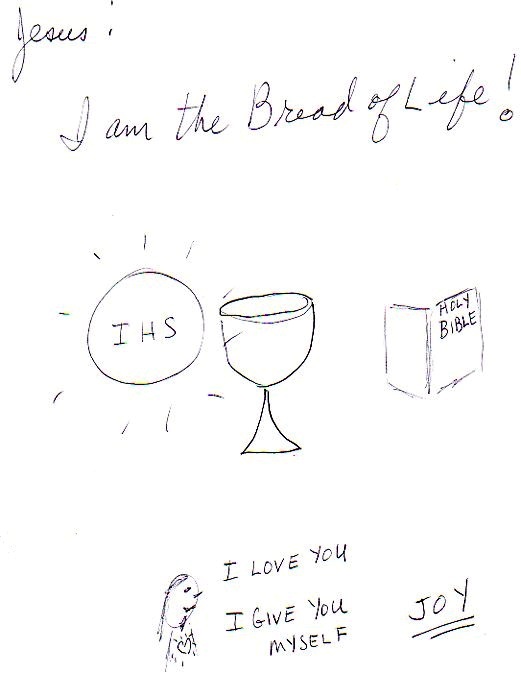 Jesus:
I am the Bread of Life!
IHS
HOLY
BIBLE
I LOVE YOU
I GIVE YOU
MYSELF
JOY